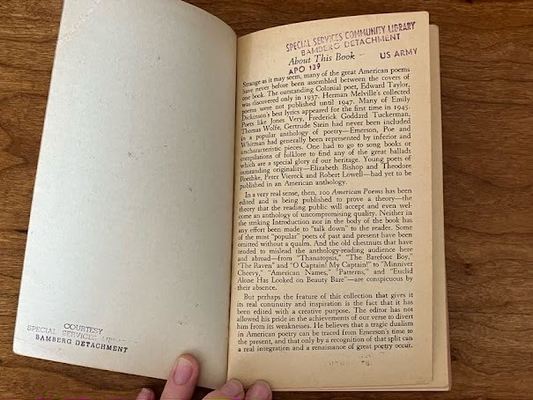 COURTESY
SPECIAL SERVICES
BAMBERG DETACHMENT
SPECIAL SERVICES COMMUNITY LIBRARY
BAMBERG DETACHMENT
About This Book
US ARMY
APO 139
Strange as it may seem, many of the great American poems
have never before been assembled between the covers of
one book. The outstanding Colonial poet, Edward Taylor,
was discovered only in 1937. Herman Melville's collected
poems were not published until 1947. Many of Emily
Dickinson's best lyrics appeared for the first time in 1945.
Poets like Jones Very, Frederick Goddard Tuckerman,
Thomas Wolfe, Gertrude Stein had never been included
in a popular anthology of poetry—Emerson, Poe and
Whitman had generally been represented by inferior and
uncharacteristic pieces. One had to go to song books or
compilations of folklore to find any of the great ballads
which are a special glory of our heritage. Young poets of
outstanding originality—Elizabeth Bishop and Theodore
Roethke, Peter Viereck and Robert Lowell—had yet to be
published in an American anthology.
In a very real sense, then, 100 American Poems has been
edited and is being published to prove a theory—the
theory that the reading public will accept and even wel-
come an anthology of uncompromising quality. Neither in
the striking Introduction nor in the body of the book has
any effort been made to "talk down" to the reader. Some
of the most "popular" poets of past and present have been
omitted without a qualm. And the old chestnuts that have
tended to mislead the anthology-reading audience here
and abroad—from "Thanatopsis," "The Barefoot Boy,"
"The Raven" and "O Captain! My Captain!" to "Miniver
Cheevy," "American Names," "Patterns," and "Euclid
Alone Has Looked on Beauty Bare"—are conspicuous by
their absence.
But perhaps the feature of this collection that gives it
its real continuity and inspiration is the fact that it has
been edited with a creative purpose. The editor has not
allowed his pride in the achievements of our verse to divert
him from its weaknesses. He believes that a tragic dualism
in American poetry can be traced from Emerson's time to
the present, and that only by a recognition of that split can
a real integration and a renaissance of great poetry occur.